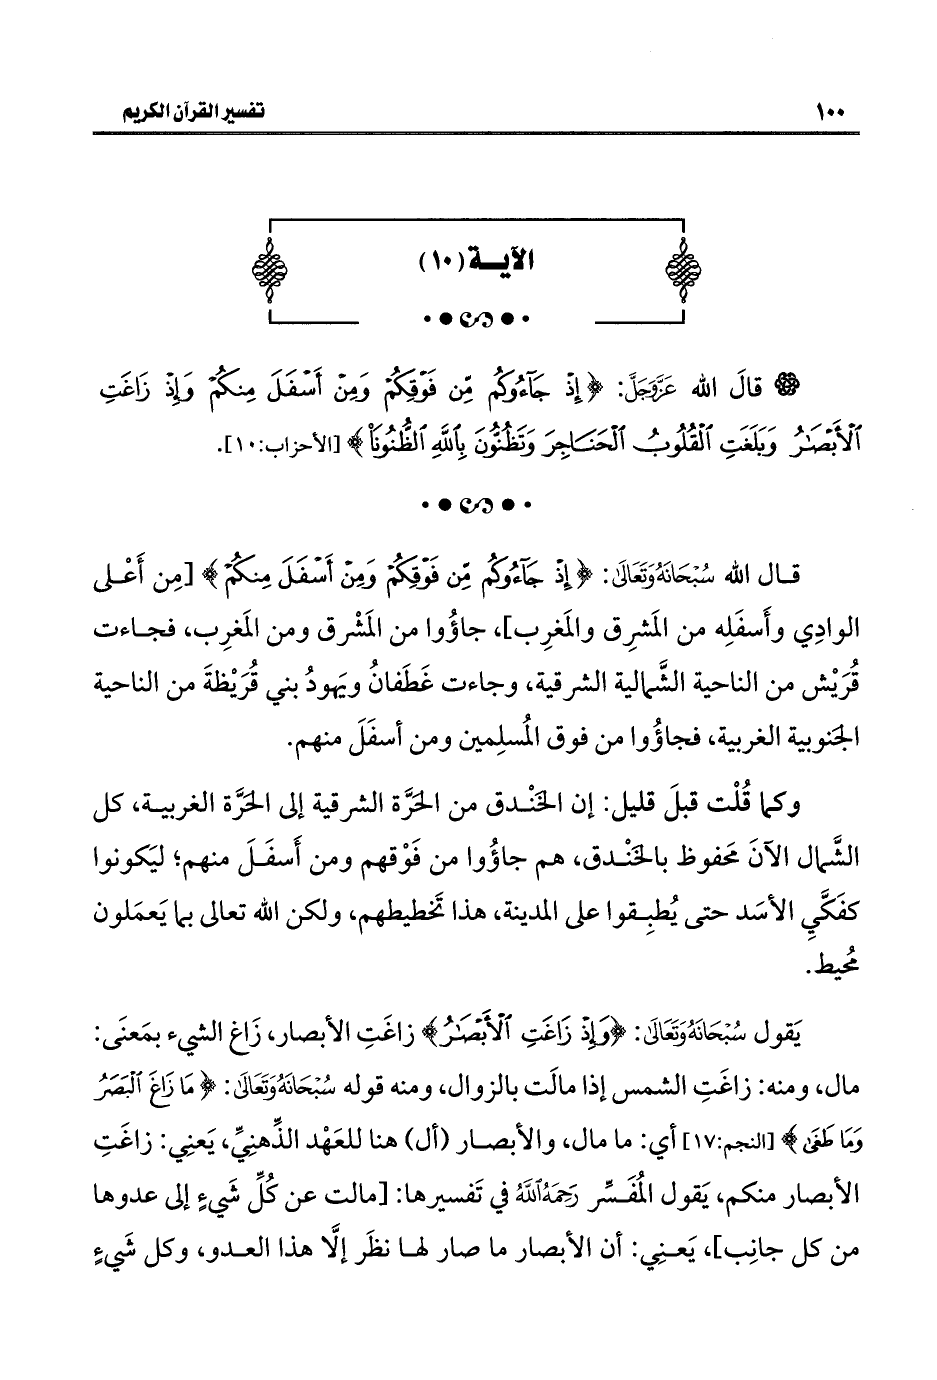 ١٠٠ تفسير القرآن الكريم
الآيــة (١٠)
قالَ الله عَزَّوَجَلَّ: ﴿إِذْ جَآءُوكُم مِّن فَوْقِكُمْ وَمِنْ أَسْفَلَ مِنكُمْ وَإِذْ زَاغَتِ
ٱلْأَبْصَٰرُ وَبَلَغَتِ ٱلْقُلُوبُ ٱلْحَنَاجِرَ وَتَظُنُّونَ بِٱللَّهِ ٱلظُّنُونَا۠﴾ [الأحزاب:١٠].
قــال الله سُبْحَانَهُ وَتَعَالَى: ﴿إِذْ جَآءُوكُم مِّن فَوْقِكُمْ وَمِنْ أَسْفَلَ مِنكُمْ﴾ [مِن أَعْـلى
الوادِي وأَسفَلِه من المَشرِق والمَغرِب]، جاؤُوا من المَشْرق ومن المَغرِب، فجـاءت
قُرَيْش من الناحية الشَّمالية الشرقية، وجاءت غَطَفانُ ويَهودُ بني قُرَيْظةَ من الناحية
الجَنوبية الغربية، فجاؤُوا من فوق المُسلِمين ومن أسفَلَ منهم.
وكما قُلْت قبلَ قليل: إن الخَنْدق من الحَرَّة الشرقية إلى الحَرَّة الغربيـة، كل
الشَّمال الآنَ مَحفوظ بالخَنْـدق، هم جاؤُوا من فَوْقهم ومن أَسفَـلَ منهم؛ ليَكونوا
كفَكَّيِ الأسَد حتى يُطبِـقوا على المدينة، هذا تَخطيطهم، ولكن الله تعالى بما يَعمَلون
مُحيط.
يَقول سُبْحَانَهُ وَتَعَالَى: ﴿وَإِذْ زَاغَتِ ٱلْأَبْصَٰرُ﴾ زاغَتِ الأبصار، زَاغ الشيء بمَعنَى:
مال، ومنه: زاغَتِ الشمس إذا مالَت بالزوال، ومنه قوله سُبْحَانَهُ وَتَعَالَى: ﴿مَا زَاغَ ٱلْبَصَرُ
وَمَا طَغَىٰ﴾ [النجم:١٧] أي: ما مال، والأبصـار (أل) هنا للعَهْد الذِّهنِيِّ، يَعنِي: زاغَتِ
الأبصار منكم، يَقول المُفَسِّر رَحِمَهُ اللَّهُ في تَفسيرها: [مالت عن كُلِّ شَيءٍ إلى عدوها
من كل جانِب]، يَعـنِي: أن الأبصار ما صار لهـا نظَر إلَّا هذا العـدو، وكل شَيءٍ